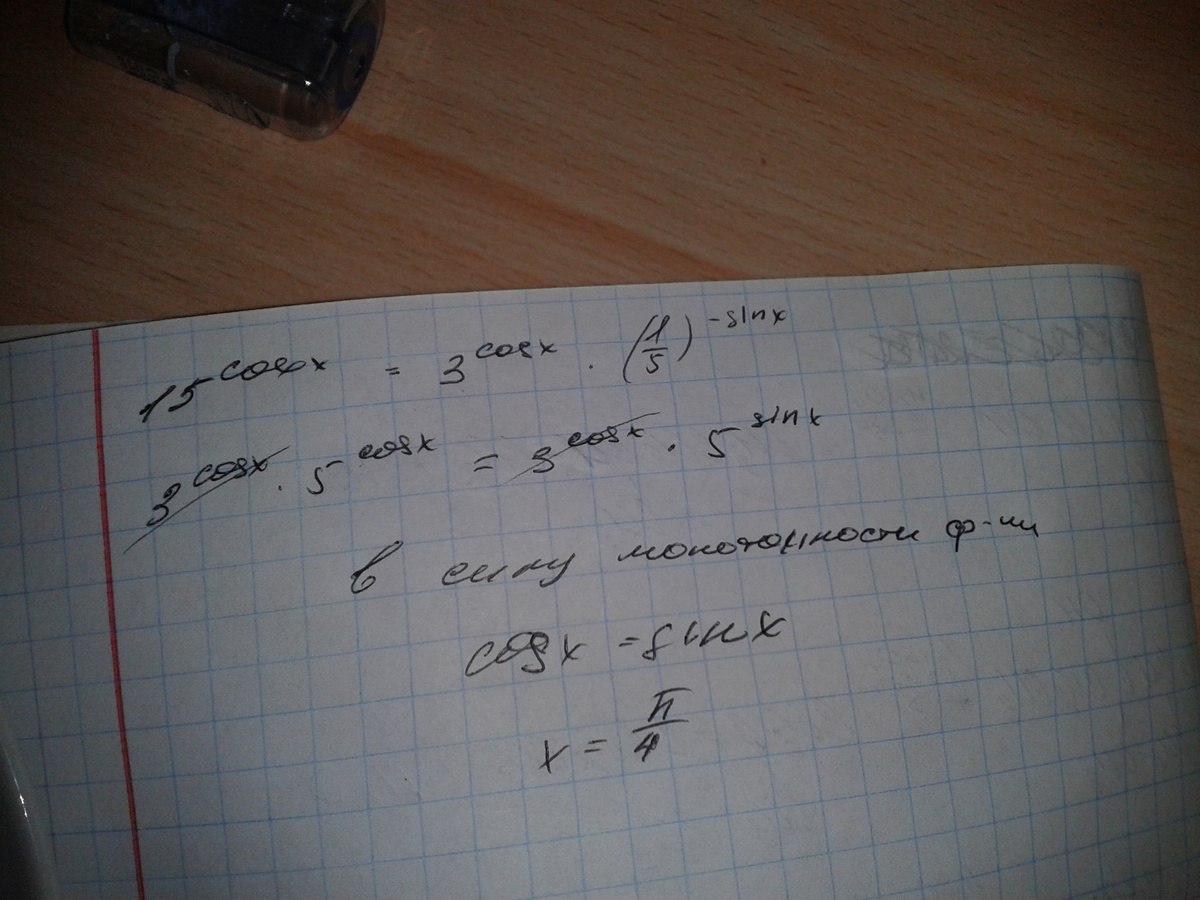 15^cosx = 3^cosx · (1/5)^-sinx
3^cosx · 5^cosx = 3^cosx · 5^sinx
в силу монотонности ф-ии
cosx = sinx
x = π/4